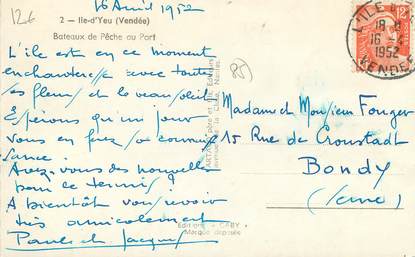 126
16 Avril 1952
2 – Ile-d'Yeu (Vendée)
Bateaux de Pêche au Port
L'île est en ce moment
enchanteresse avec toutes
ses fleurs et le beau soleil
Espérons qu'un jour
vous en ferez sa connais
sance.
Avez-vous des nouvelles
pour ce tennis ?
A bientôt vous revoir
très amicalement
Paule et Jacques
12
18 H
16 - 4
1952
VENDÉE
Madame et Monsieur Fouger
15 Rue de Cronstadt
Bondy
(Seine)
Editions "GABY"
Marque déposée